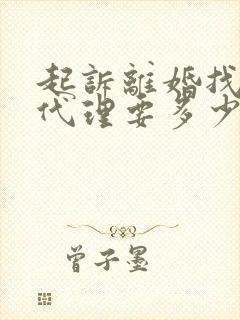 起訴離婚找
代理要多少
曾子墨